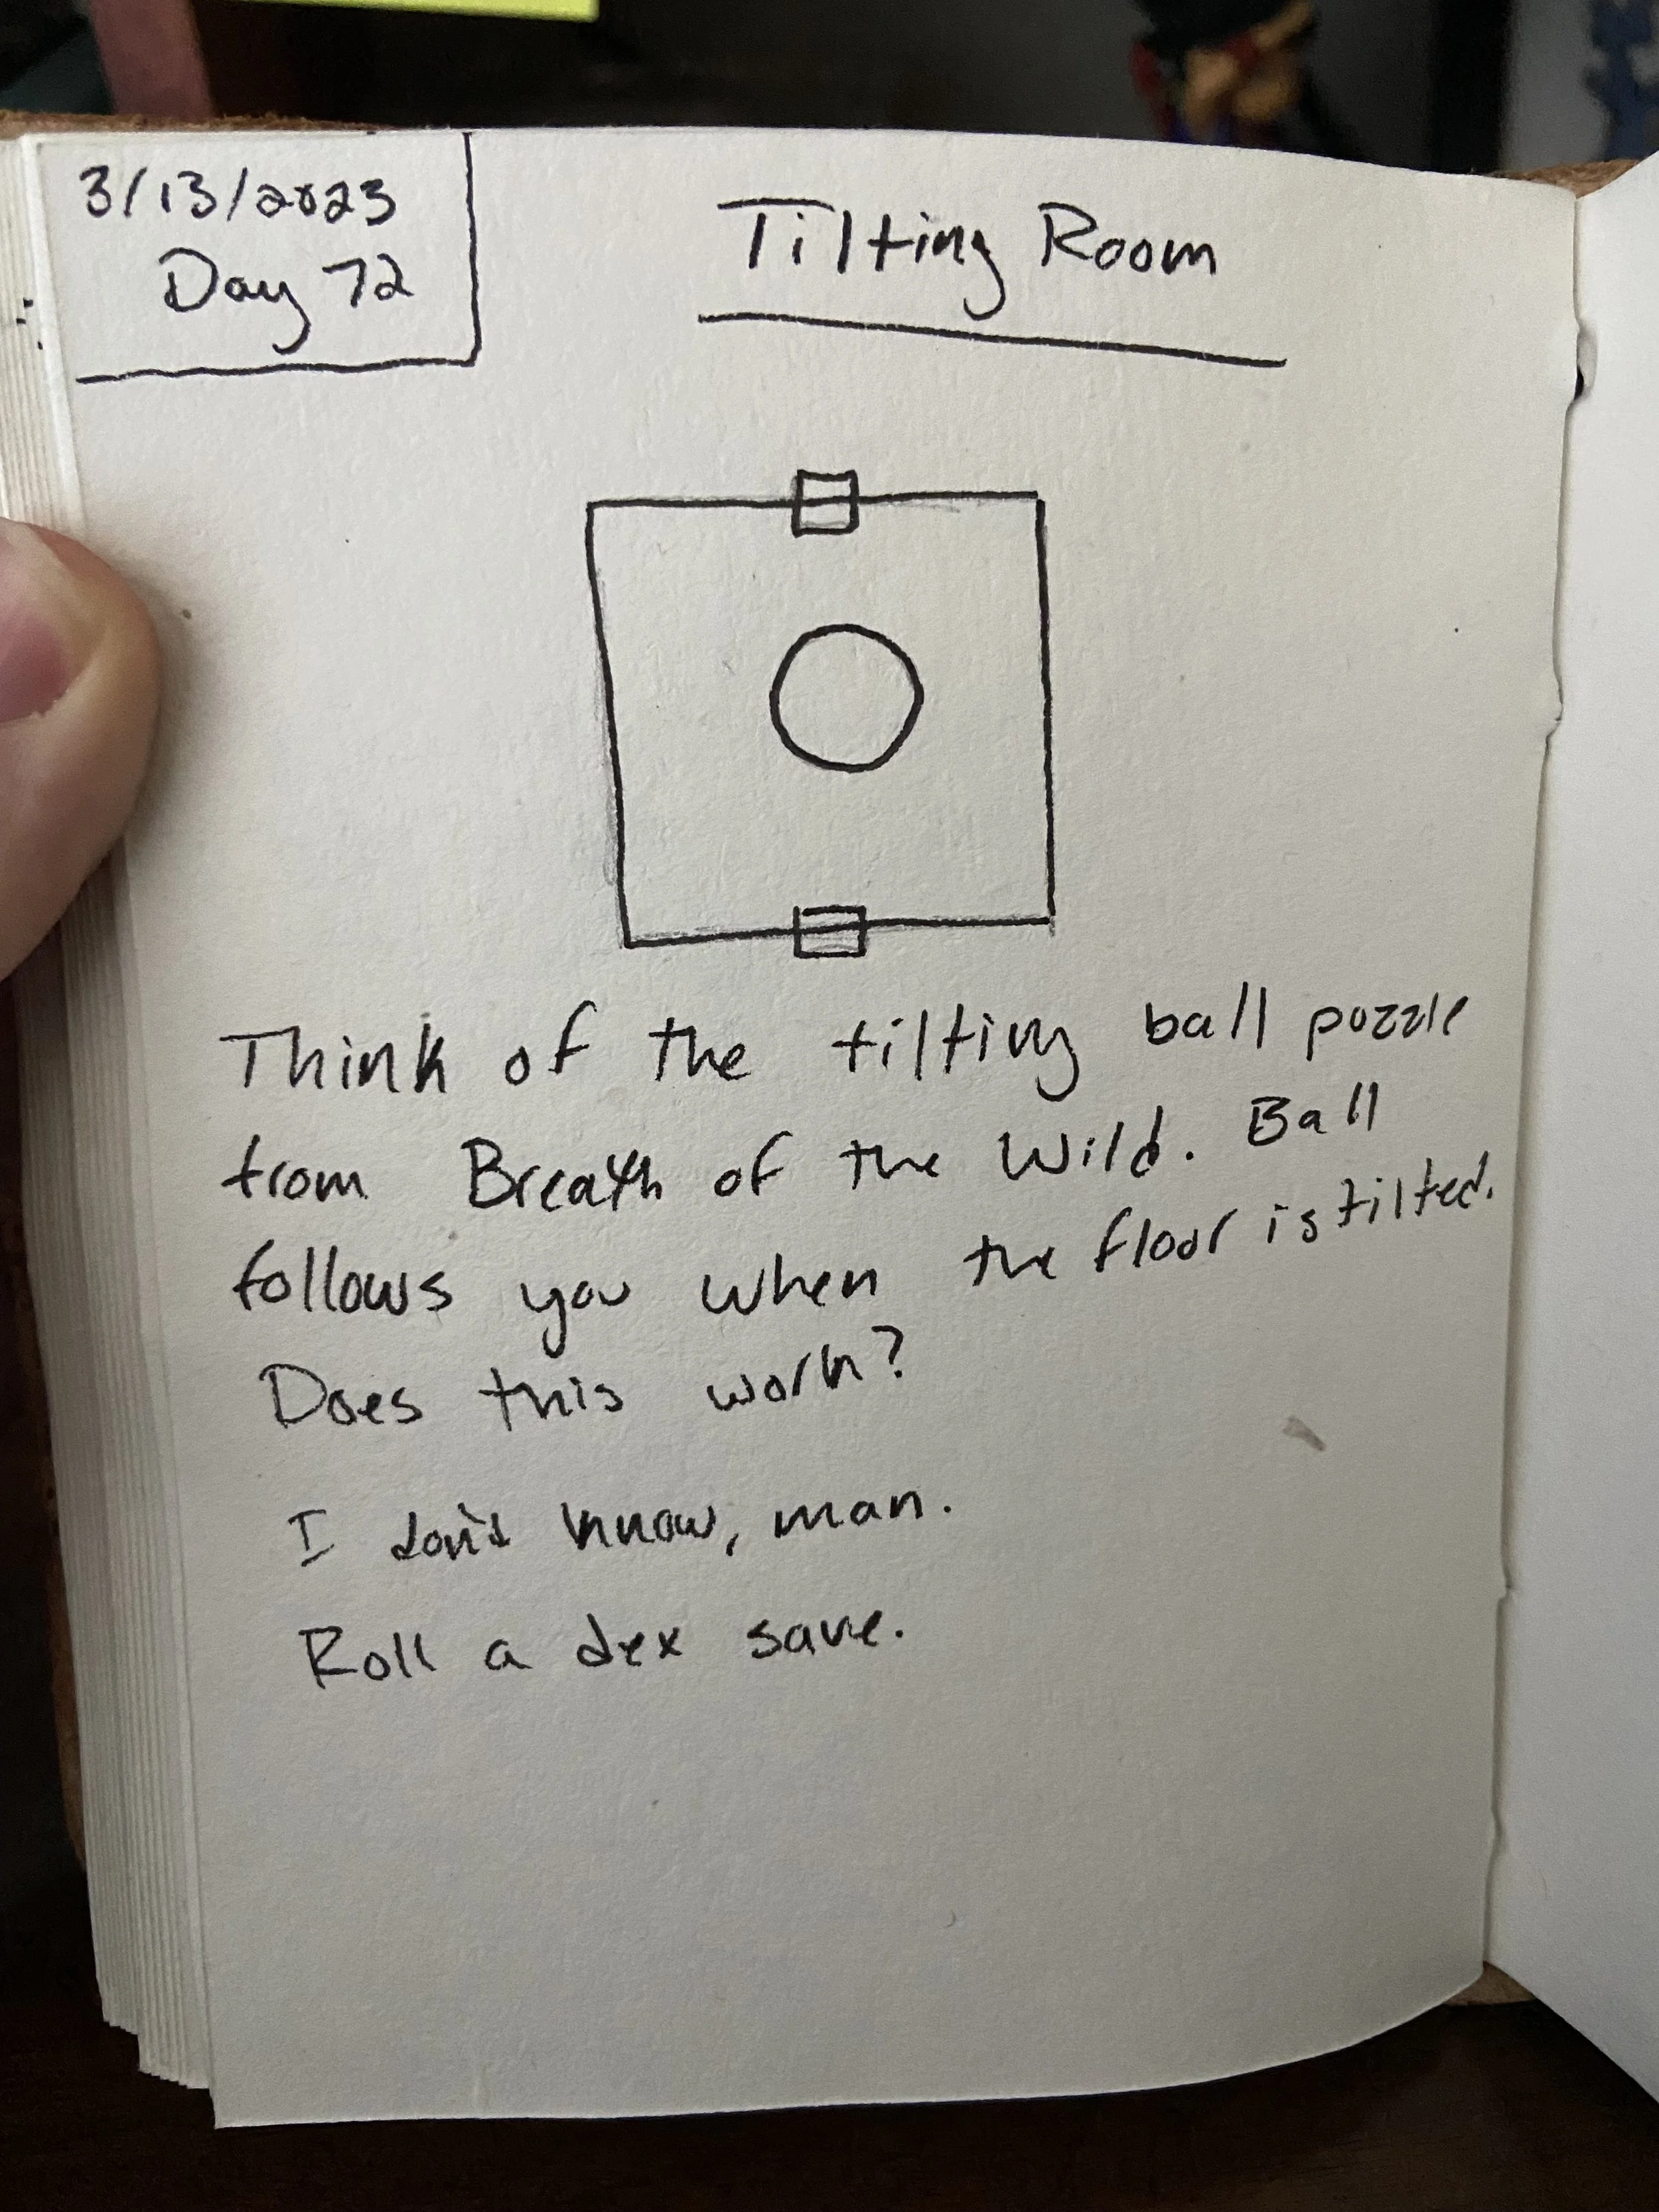 3/13/2023
Day 72
Tilting Room
Think of the tilting ball puzzle
from Breath of the Wild. Ball
follows you when the floor is tilted.
Does this work?
I don't know, man.
Roll a dex save.